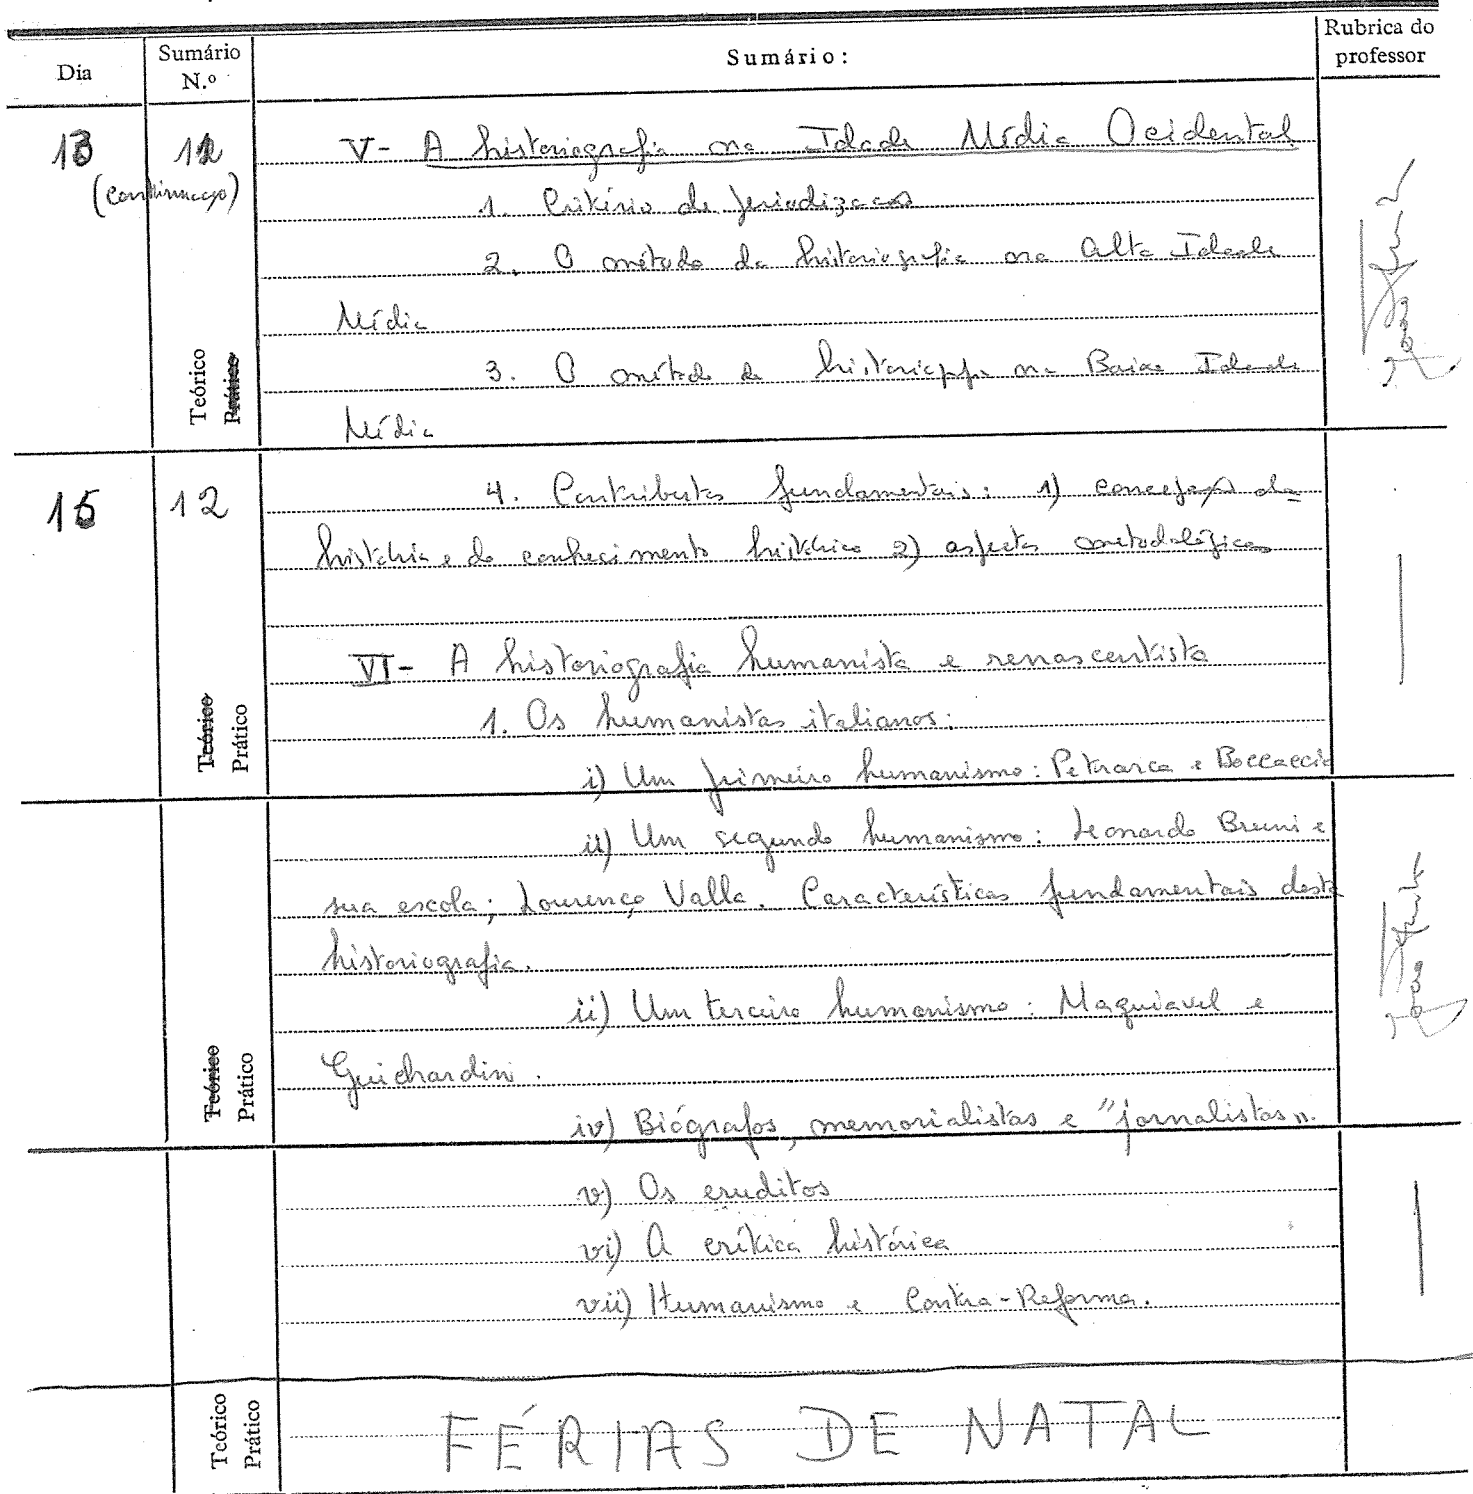 Dia Sumário N.º Sumário: Rubrica do professor
13 11 V- A historiografia na Idade Média Ocidental
(continuação)
1. Critério de periodização
2. O método da historiografia na Alta Idade
Média
3. O método da historiografia na Baixa Idade
Média
Teórico
Prático
15 12 4. Contributos fundamentais: 1) concepção da
história e do conhecimento histórico 2) aspectos metodológicos
VI- A historiografia humanista e renascentista
1. Os humanistas italianos:
i) Um primeiro humanismo: Petrarca e Boccaccio
Teórico
Prático
ii) Um segundo humanismo: Leonardo Bruni e
sua escola; Lourenço Valla. Características fundamentais desta
historiografia.
ii) Um terceiro humanismo: Maquiavel e
Guichardini.
iv) Biógrafos, memorialistas e "jornalistas".
Teórico
Prático
v) Os eruditos
vi) A crítica histórica
vii) Humanismo e Contra-Reforma.
Teórico
Prático
FÉRIAS DE NATAL